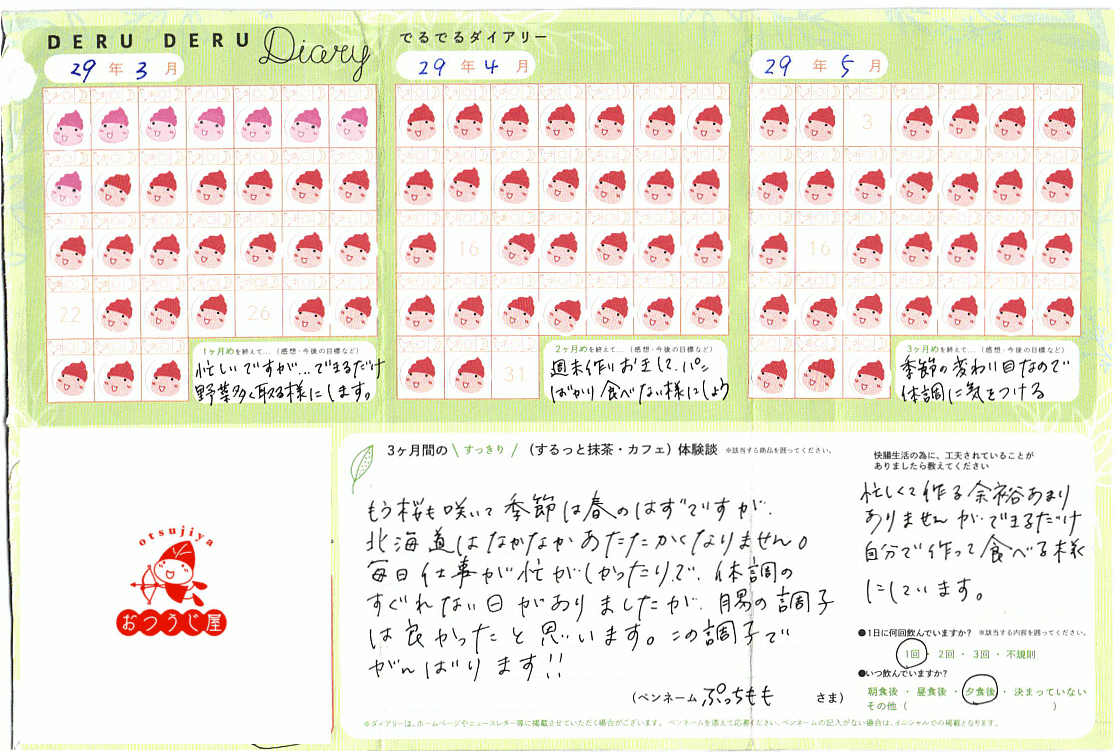 DERU DERU Diary でるでるダイアリー
29 年 3 月
29 年 4 月
29 年 5 月
3
16
16
22
26
31
1ヶ月めを終えて…（感想・今後の目標など）
忙しいですが…できるだけ
野菜多く取る様にします。
2ヶ月めを終えて…（感想・今後の目標など）
週末作りおきして、パン
ばかり食べない様にしよう
3ヶ月めを終えて…（感想・今後の目標など）
季節の変わり目なので
体調に気をつける
otsujiya
おつうじ屋
3ヶ月間の \ すっきり / （するっと抹茶・カフェ）体験談 ※該当する商品を囲ってください。
もう桜も咲いて季節は春のはずですが、
北海道はなかなかあたたかくなりません。
毎日仕事が忙がしかったりで、体調の
すぐれない日がありましたが、腸の調子
は良かったと思います。この調子で
がんばります!!
（ペンネーム ぷっちもも さま）
快腸生活の為に、工夫されていることが
ありましたら教えてください
忙しくて作る余裕あまり
ありませんが、できるだけ
自分で作って食べる様
にしています。
●1日に何回飲んでいますか? ※該当する内容を囲ってください。
1回・2回・3回・不規則
●いつ飲んでいますか?
朝食後・昼食後・夕食後・決まっていない
その他（ ）
※ダイアリーは、ホームページやニュースレター等に掲載させていただく場合がございます。 ペンネームを添えて応募ください。ペンネームの記入がない場合は、イニシャルでの掲載となります。